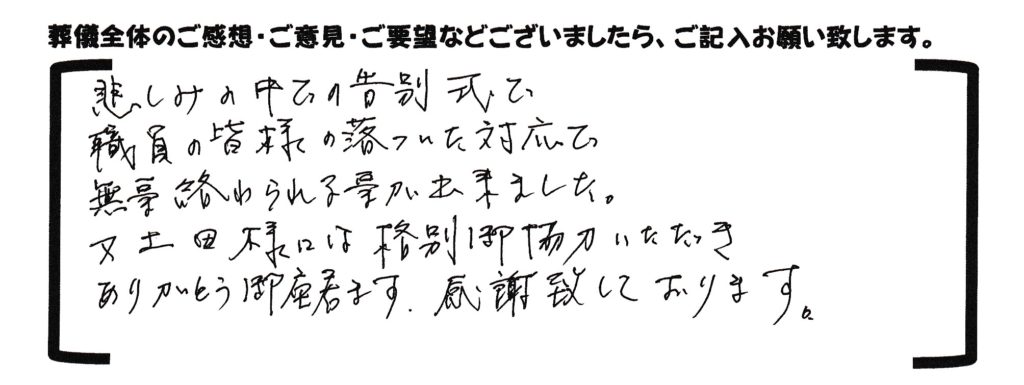 葬儀全体のご感想・ご意見・ご要望などございましたら、ご記入お願い致します。
悲しみの中での告別式で
職員の皆様の落ついた対応で
無事終わられる事が出来ました。
又土田様には格別御協力いただき
ありがとう御座居ます. 感謝致しております。